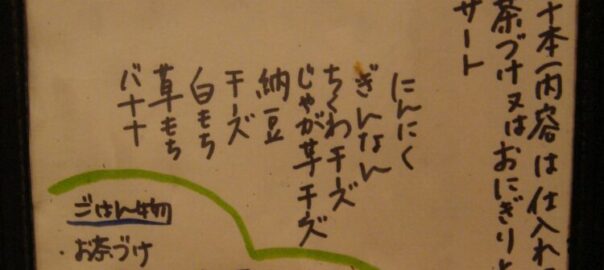 十本(内容は仕入れ
茶づけ又はおにぎりと
サート
にんにく
ぎんなん
ちくわチーズ
じゃが芋チーズ
納豆
チーズ
白もち
草もち
バナナ
ごはん物
・お茶づけ